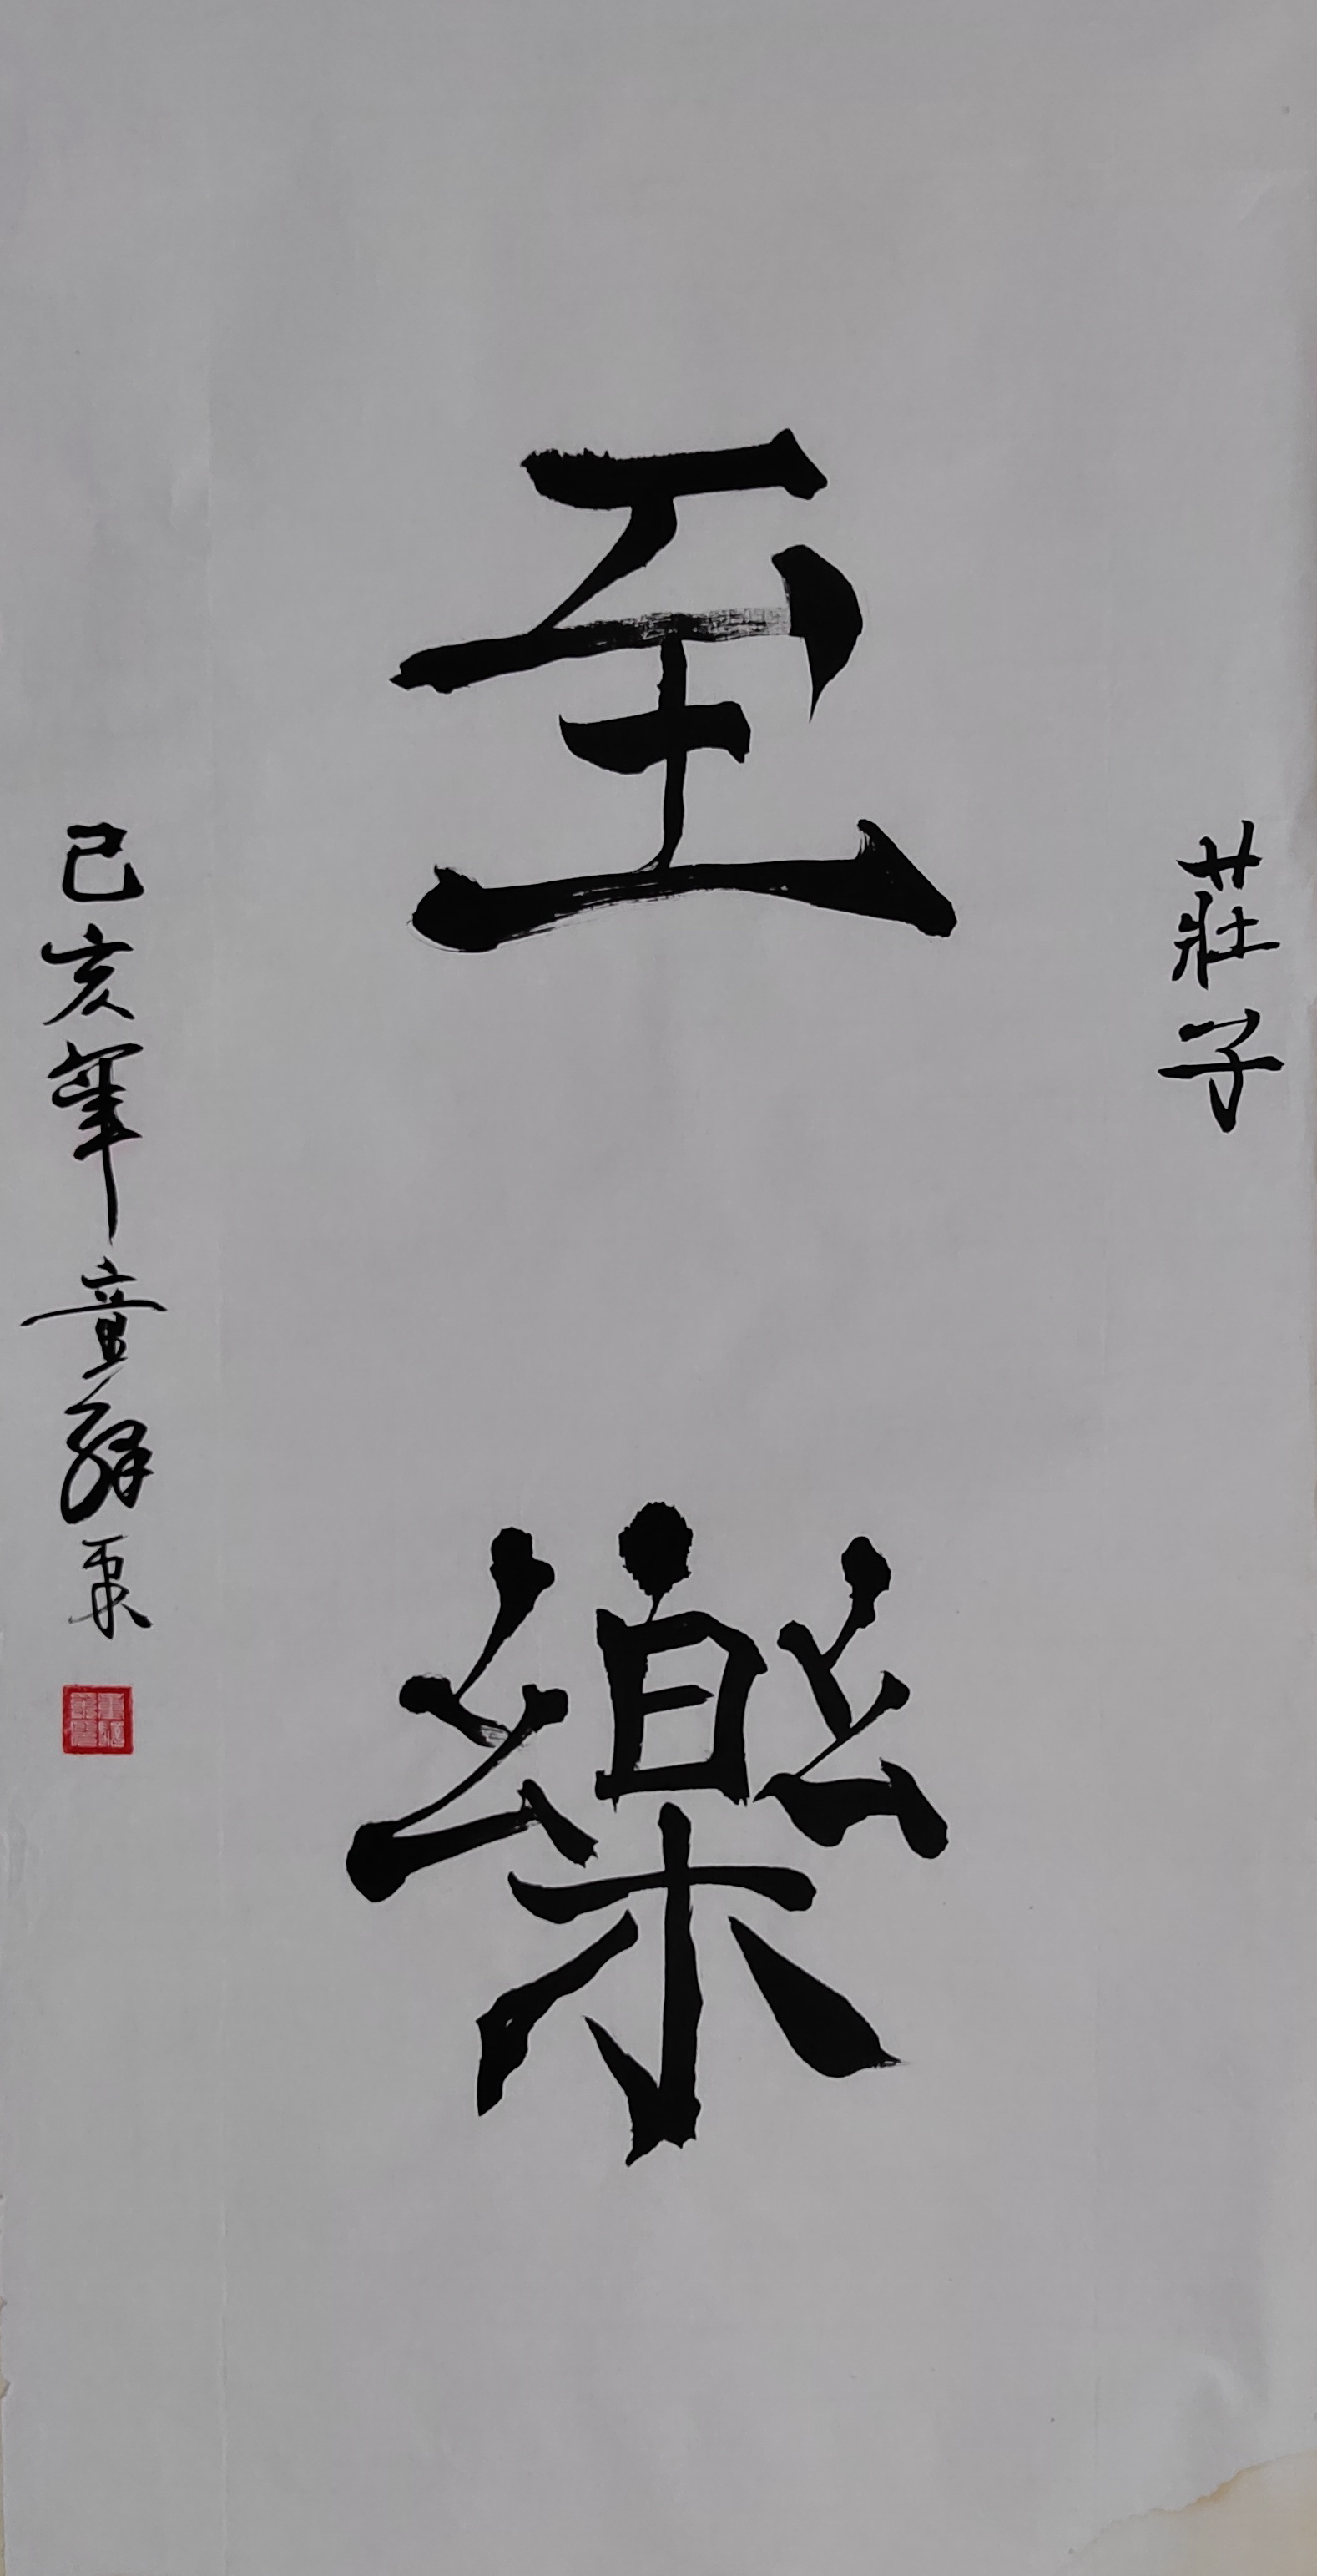 莊子
至樂
己亥年童辭秉